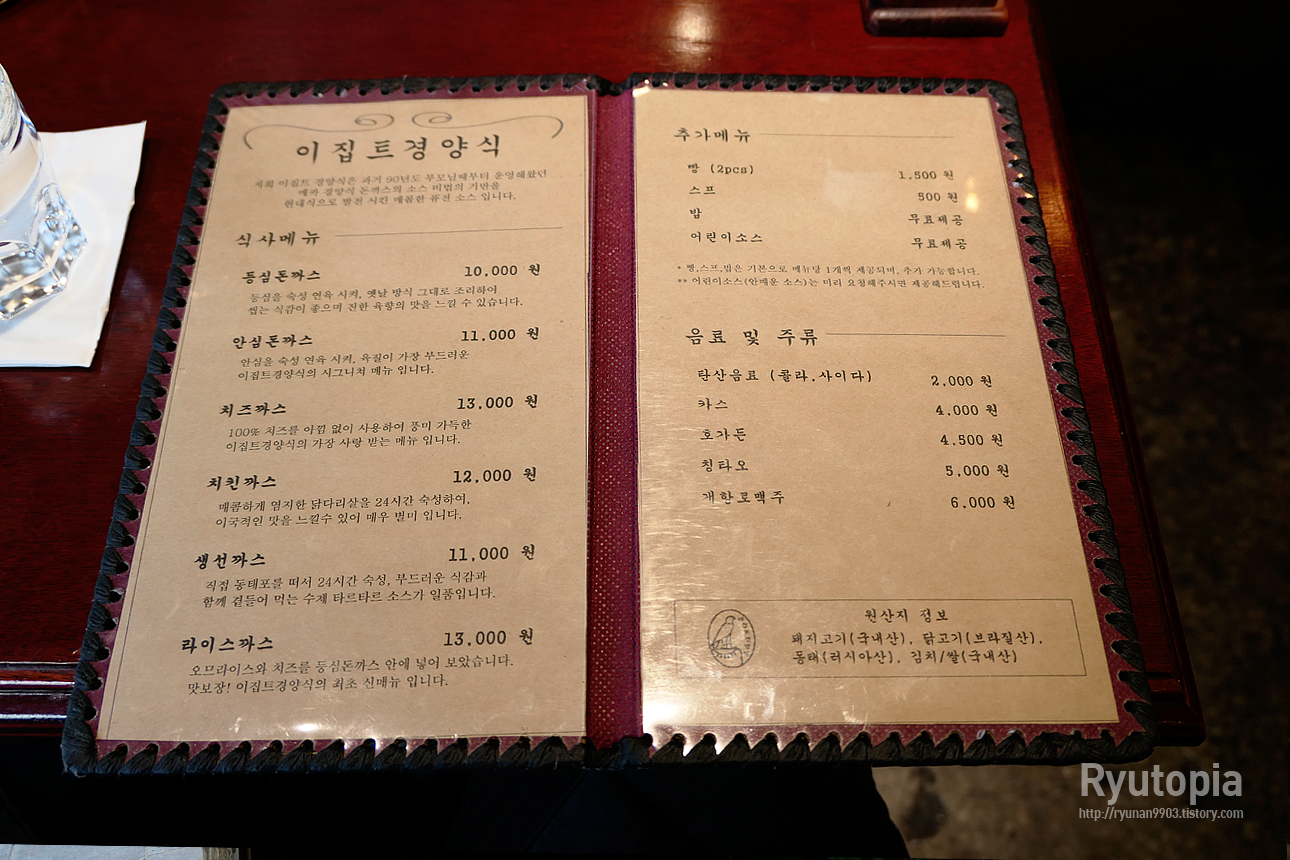 이집트경양식
저희 이집트 경양식은 과거 90년도 부모님때부터 운영해왔던
메카 경양식 돈까스의 소스 비법의 기반을
현대식으로 발전 시킨 매콤한 퓨전 소스 입니다.
식사메뉴
등심돈까스 10,000 원
등심을 숙성 연육 시켜, 옛날 방식 그대로 조리하여
씹는 식감이 좋으며 진한 육향의 맛을 느낄 수 있습니다.
안심돈까스 11,000 원
안심을 숙성 연육 시켜, 육질이 가장 부드러운
이집트경양식의 시그니쳐 메뉴 입니다.
치즈까스 13,000 원
100% 치즈를 아낌 없이 사용하여 풍미 가득한
이집트경양식의 가장 사랑 받는 메뉴 입니다.
치킨까스 12,000 원
매콤하게 염지한 닭다리살을 24시간 숙성하여,
이국적인 맛을 느낄수 있어 매우 별미 입니다.
생선까스 11,000 원
직접 동태포를 떠서 24시간 숙성, 부드러운 식감과
함께 곁들어 먹는 수제 타르타르 소스가 일품입니다.
라이스까스 13,000 원
오므라이스와 치즈를 등심돈까스 안에 넣어 보았습니다.
맛보장! 이집트경양식의 최초 신메뉴 입니다.
추가메뉴
빵 (2pcs) 1,500 원
스프 500 원
밥 무료제공
어린이소스 무료제공
* 빵,스프,밥은 기본으로 메뉴당 1개씩 제공되며, 추가 가능합니다.
** 어린이소스(안매운 소스)는 미리 요청해주시면 제공해드립니다.
음료 및 주류
탄산음료 (콜라,사이다) 2,000 원
카스 4,000 원
호가든 4,500 원
칭타오 5,000 원
개한로맥주 6,000 원
원산지 정보
돼지고기(국내산), 닭고기(브라질산),
동태(러시아산), 김치/쌀(국내산)
Ryutopia
http://ryunan9903.tistory.com